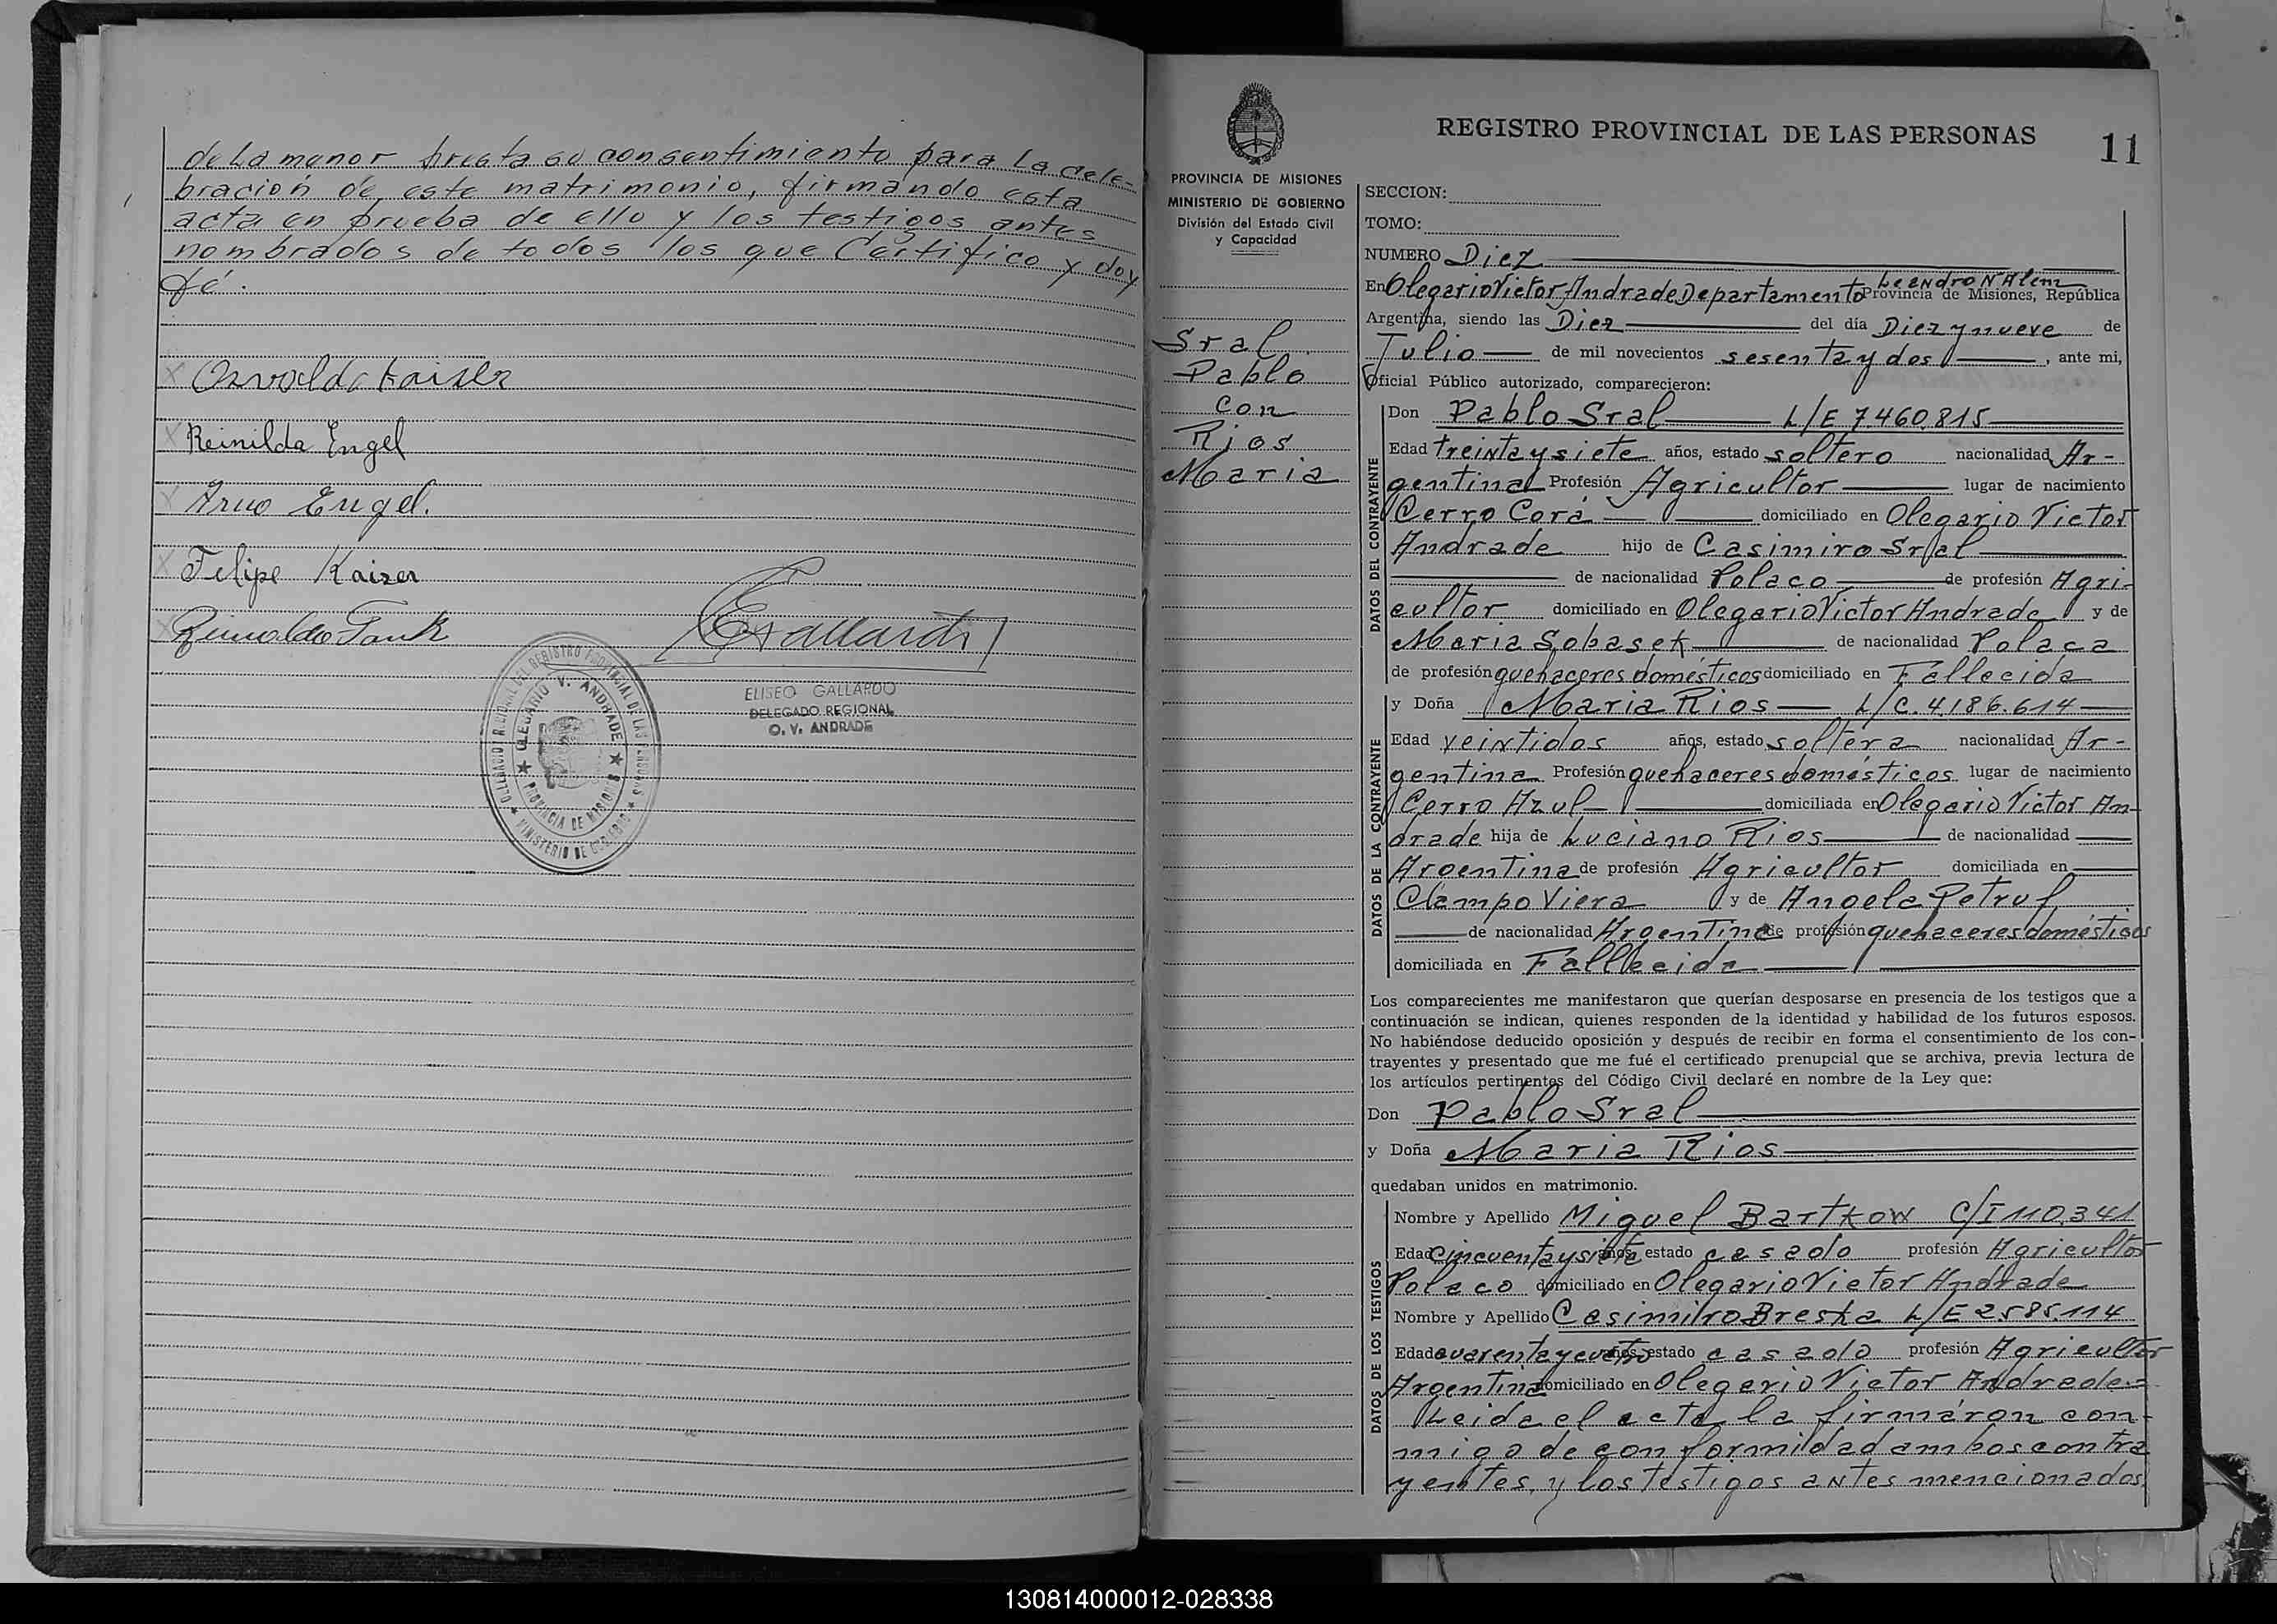 de la menor presta su consentimiento para la cele-
bración de este matrimonio, firmando esta
acta en prueba de ello y los testigos antes
nombrados de todos los que Certifico y doy
fé.
Osvaldo Kaiser
Reinilda Engel
Arno Engel.
Felipe Kaiser
EGallardo
ELISEO GALLARDO
DELEGADO REGIONAL
O. V. ANDRADE
DELEGACION REGIONAL DEL REGISTRO PROVINCIAL DE LAS PERSONAS
OLEGARIO V. ANDRADE
PROVINCIA DE MISIONES
MINISTERIO DE GOBIERNO
REGISTRO PROVINCIAL DE LAS PERSONAS
11
PROVINCIA DE MISIONES
MINISTERIO DE GOBIERNO
División del Estado Civil
y Capacidad
Sral
Pablo
con
Rios
Maria
SECCION:
TOMO:
NUMERO Diez
En Olegario Victor Andrade Departamento Leandro N Alem Provincia de Misiones, República
Argentina, siendo las Diez del día Diez y nueve de
Julio de mil novecientos sesenta y dos, ante mi,
Oficial Público autorizado, comparecieron:
DATOS DEL CONTRAYENTE
Don Pablo Sral L/E 7.460.815
Edad treinta y siete años, estado soltero nacionalidad Ar-
gentina Profesión Agricultor lugar de nacimiento
Cerro Corá domiciliado en Olegario Victor
Andrade hijo de Casimiro Sral
de nacionalidad Polaco de profesión Agri-
cultor domiciliado en Olegario Victor Andrade y de
Maria Sobasek de nacionalidad Polaca
de profesión quehaceres domésticos domiciliado en Fallecida
DATOS DE LA CONTRAYENTE
y Doña Maria Rios L/C. 4.186.614
Edad veintidos años, estado soltera nacionalidad Ar-
gentina Profesión quehaceres domésticos lugar de nacimiento
Cerro Azul domiciliada en Olegario Victor An-
drade hija de Luciano Rios de nacionalidad
Argentina de profesión Agricultor domiciliada en
Campo Viera y de Angela Petruf
de nacionalidad Argentina de profesión quehaceres domésticos
domiciliada en Fallecida
Los comparecientes me manifestaron que querían desposarse en presencia de los testigos que a
continuación se indican, quienes responden de la identidad y habilidad de los futuros esposos.
No habiéndose deducido oposición y después de recibir en forma el consentimiento de los con-
trayentes y presentado que me fué el certificado prenupcial que se archiva, previa lectura de
los artículos pertinentes del Código Civil declaré en nombre de la Ley que:
Don Pablo Sral
y Doña Maria Rios
quedaban unidos en matrimonio.
DATOS DE LOS TESTIGOS
Nombre y Apellido Miguel Bartkow C/I 110.341
Edad cincuenta y siete años, estado casado profesión Agricultor
Polaco domiciliado en Olegario Victor Andrade
Nombre y Apellido Casimiro Breska L/E 2.585.114
Edad cuarenta y cuatro años, estado casado profesión Agricultor
Argentina domiciliado en Olegario Victor Andrade=
Leida el acta la firmáron con-
migo de conformidad ambos contra
yentes, y los testigos antes mencionados.
130814000012-028338